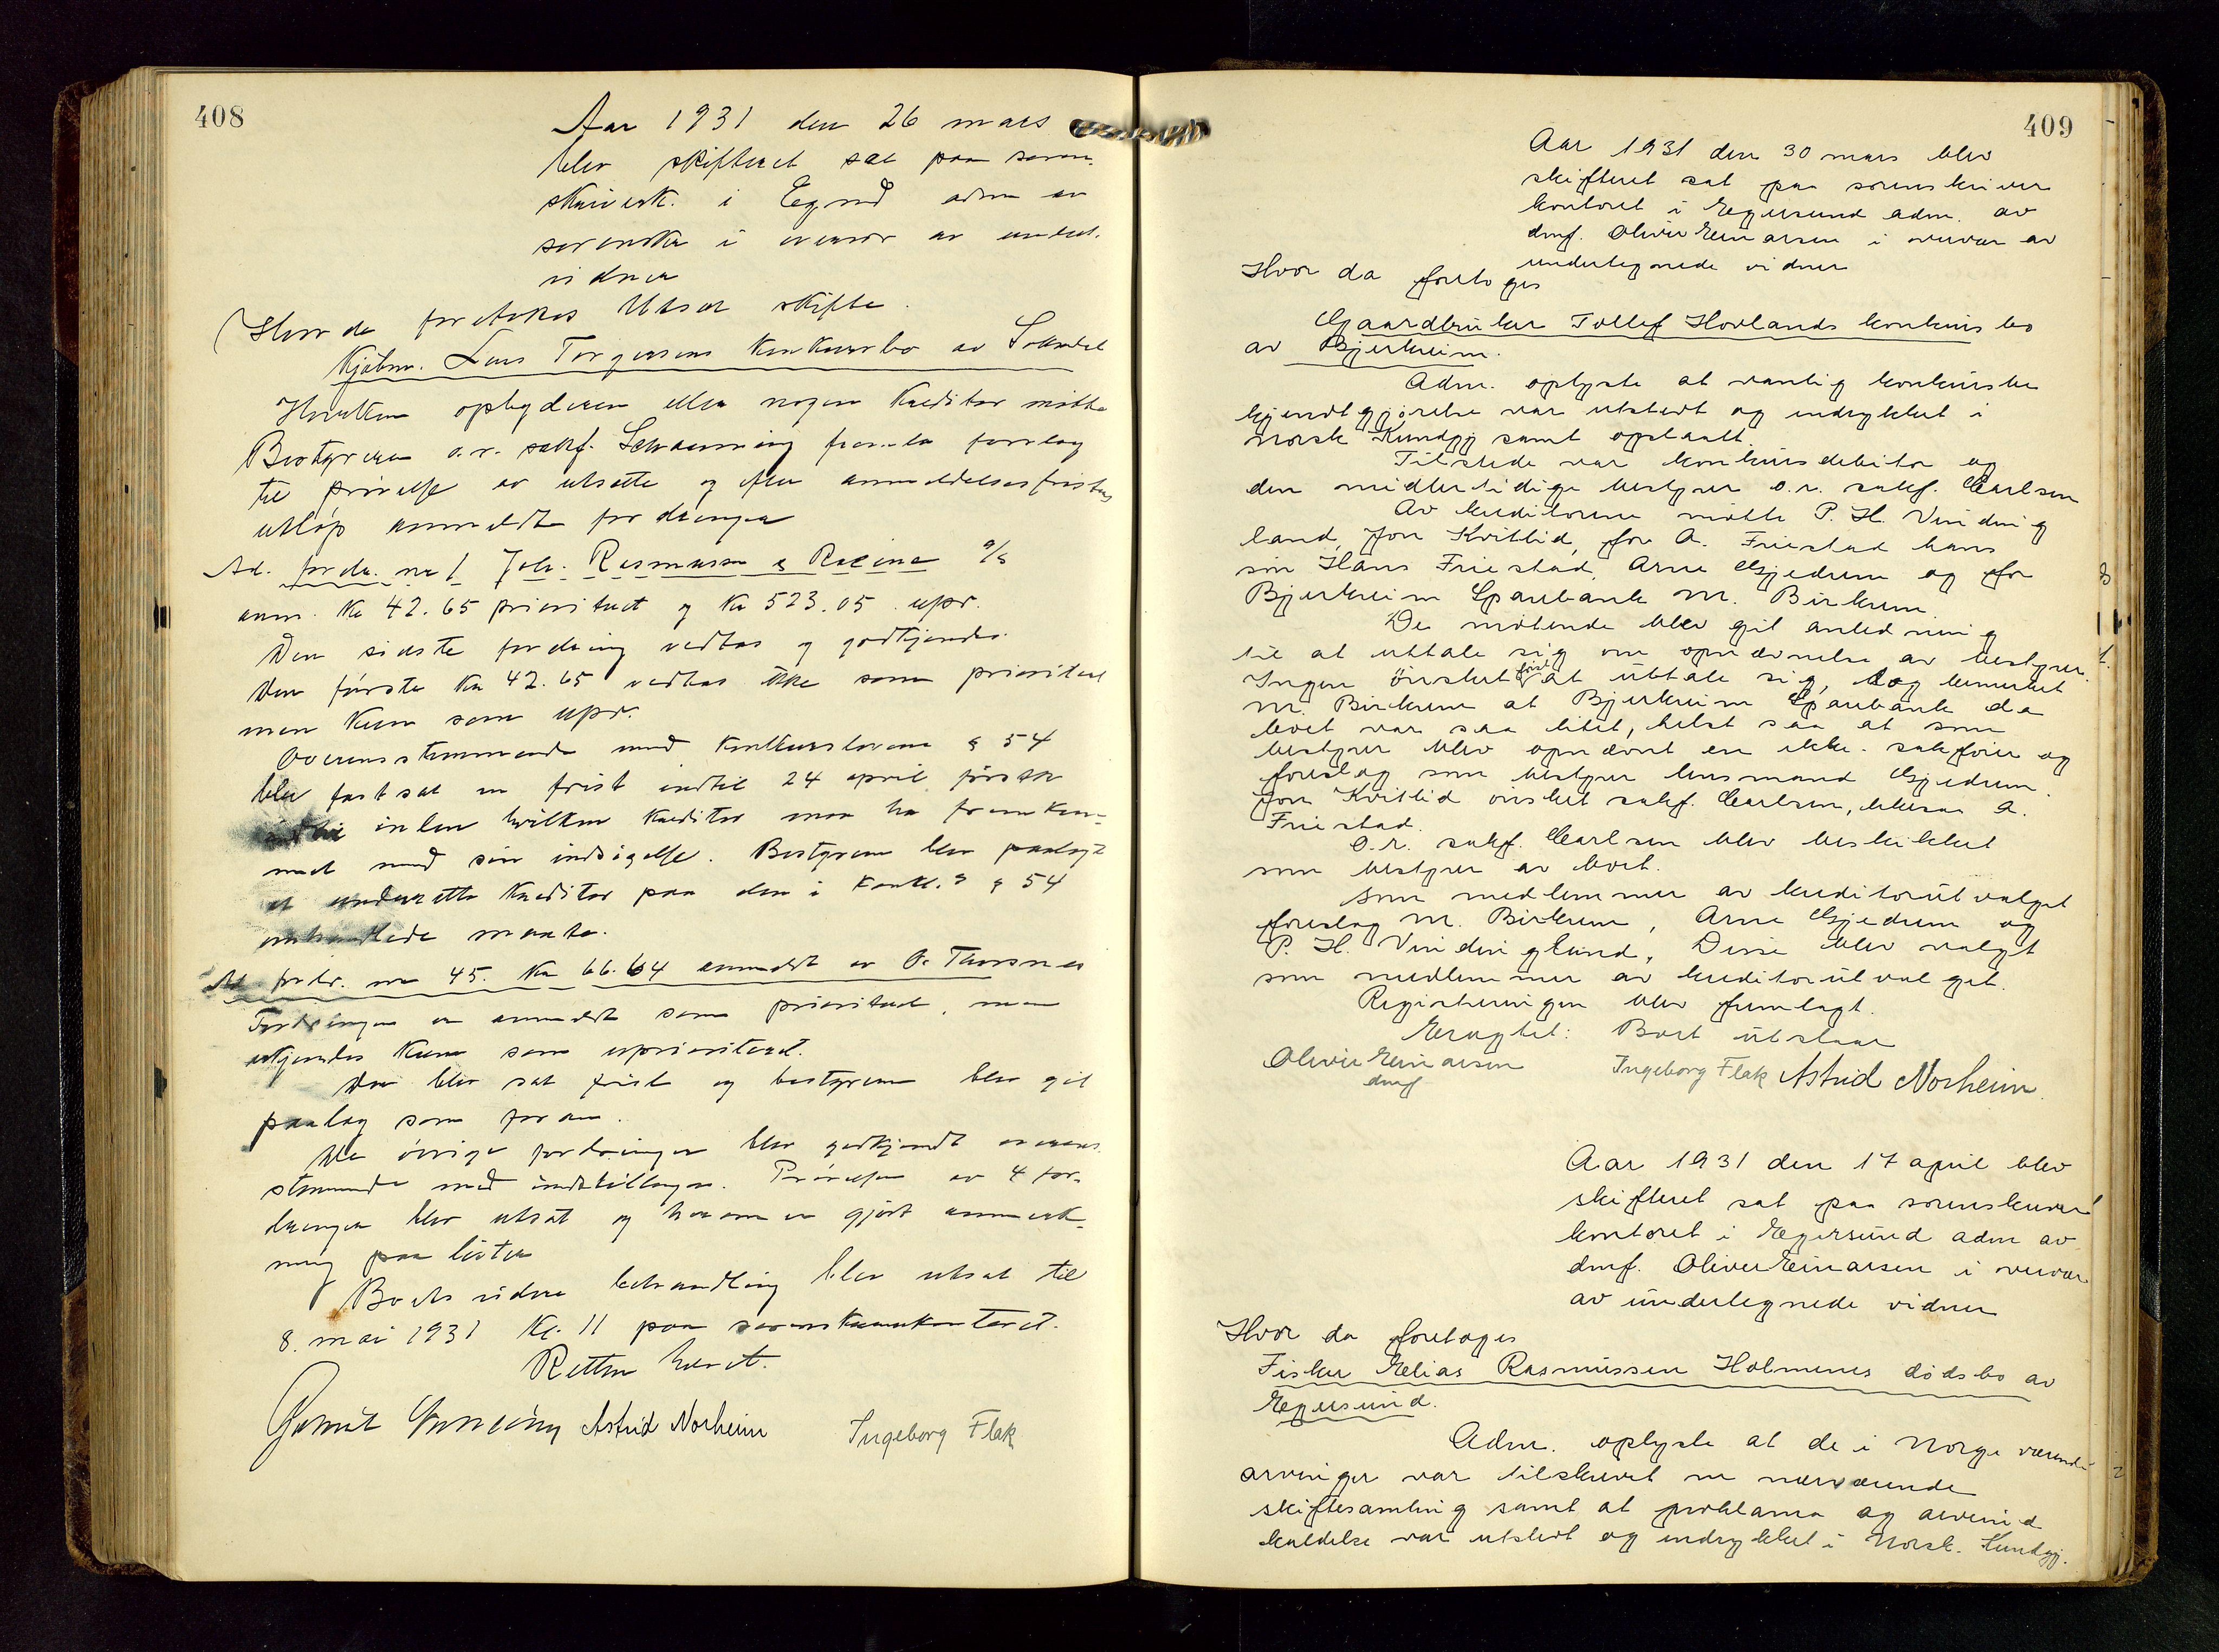 408
Aar 1931 den 26 mars
blev skifteret sat paa soren-
skriverk. i Egersund adm av
sorenskr i overvær av undert.
vidner
Hvor da foretokes Utsat skifte.
Kjøbm. Lars Torgersens Konkursbo av
Hverken opbyderen eller nogen Kreditor møtte
Bestyreren o.r. sakf. Schanning fremla forslag
til prøvelse av utsatte og efter anmeldelsesfristens
utløp anmeldte fordringer
Ad. fordr. nr 1 Joh. Rasmussen & Racine A/S
anm. Kr 42.65 prioritert og Kr 523.05 upr.
Den sidste fordring vedtas og godkjendes.
Den første Kr 42.65 vedtas ikke som prioritert
men kun som upr.
Overensstemmende med Konkurslovens § 54
blev fastsat en frist indtil 24 april førstk
inden hvilken Kreditor maa ha fremkom-
met med sin indsigelse. Bestyreren blev paalagt
at underrette Kreditor paa den i Konkl.s § 54
omhandlede maate.
Ad fordr. nr 45. Kr 66.64 anmeldt av O. Thorsnes
Fordringen er anmeldt som prioritert, men
erkjendes kun som uprioritert.
Der blev sat frist og bestyreren blev git
paalæg som foran.
De øvrige fordringer blev godkjendt overens
stemmende med indstillingen. Prøvelsen av 4 for-
dringer blev utsat og herom er gjørt anmerk-
ning paa listen
Boets videre behandling blev utsat til
8. mai 1931 Kl. 11 paa sorenskriverkontoret.
Retten hævet.
Astrid Norheim Ingeborg Flak
409
Aar 1931 den 30 mars blev
skifteret sat paa sorenskriver
kontoret i Egersund adm. av
dmf. Oliver Einarsen i overvær av
undertegnede vidner
Hvor da foretoges
Gaardbruker Tollef Hovlands konkursbo
av Bjerkreim.
Adm. oplyste at vanlig konkursbe
kjendtgjørelse var utstedt og indrykket i
Norsk Kundgj samt opslaatt.
Tilstede var konkursdebitor og
den midlertidige bestyrer o.r. sakf. Carlsen
Av kreditorene møtte P. H. Vinding
land, Jon Kvitlid, for A. Friestad hans
søn Hans Friestad, Arne Gjedrem og for
Bjerkreim Sparebank M. Birkrem.
De møtende blev git anledning
til at uttale sig om opnævnelse av bestyrer.
Ingen ønsket først at uttale sig, dog bemerket
M. Birkrem at Bjerkreim Sparebank da
boet var saa litet, helst saa at som
bestyrer blev opnævnt en ikke-sakfører og
foreslog som bestyrer lensmand Gjedrem.
Jon Kvitlid ønsket sakf. Carlsen, likesaa A.
Friestad.
O.r. sakf. Carlsen blev beskikket
som bestyrer av boet.
Som medlemmer av kreditorutvalget
foreslog M. Birkrem, Arne Gjedrem og
P. H. Vindingland, Disse blev valgt
som medlemmer av kreditorutvalget.
Registreringen blev fremlagt.
Eragtet: Boet utstaar
Oliver Einarsen Ingeborg Flak Astrid Norheim.
dmf
Aar 1931 den 17 april blev
skifteret sat paa sorenskriver
kontoret i Egersund adm av
dmf. Oliver Einarsen i overvær
av undertegnede vidner
Hvor da foretoges
Fisker Elias Rasmussen Holmenes dødsbo av
Egersund.
Adm. oplyste at de i Norge værende
arvinger var tilskrevet om nærværende
skiftesamling samt at proklama og arveind
kaldelse var utstedt og indrykket i Norsk. Kundgj.